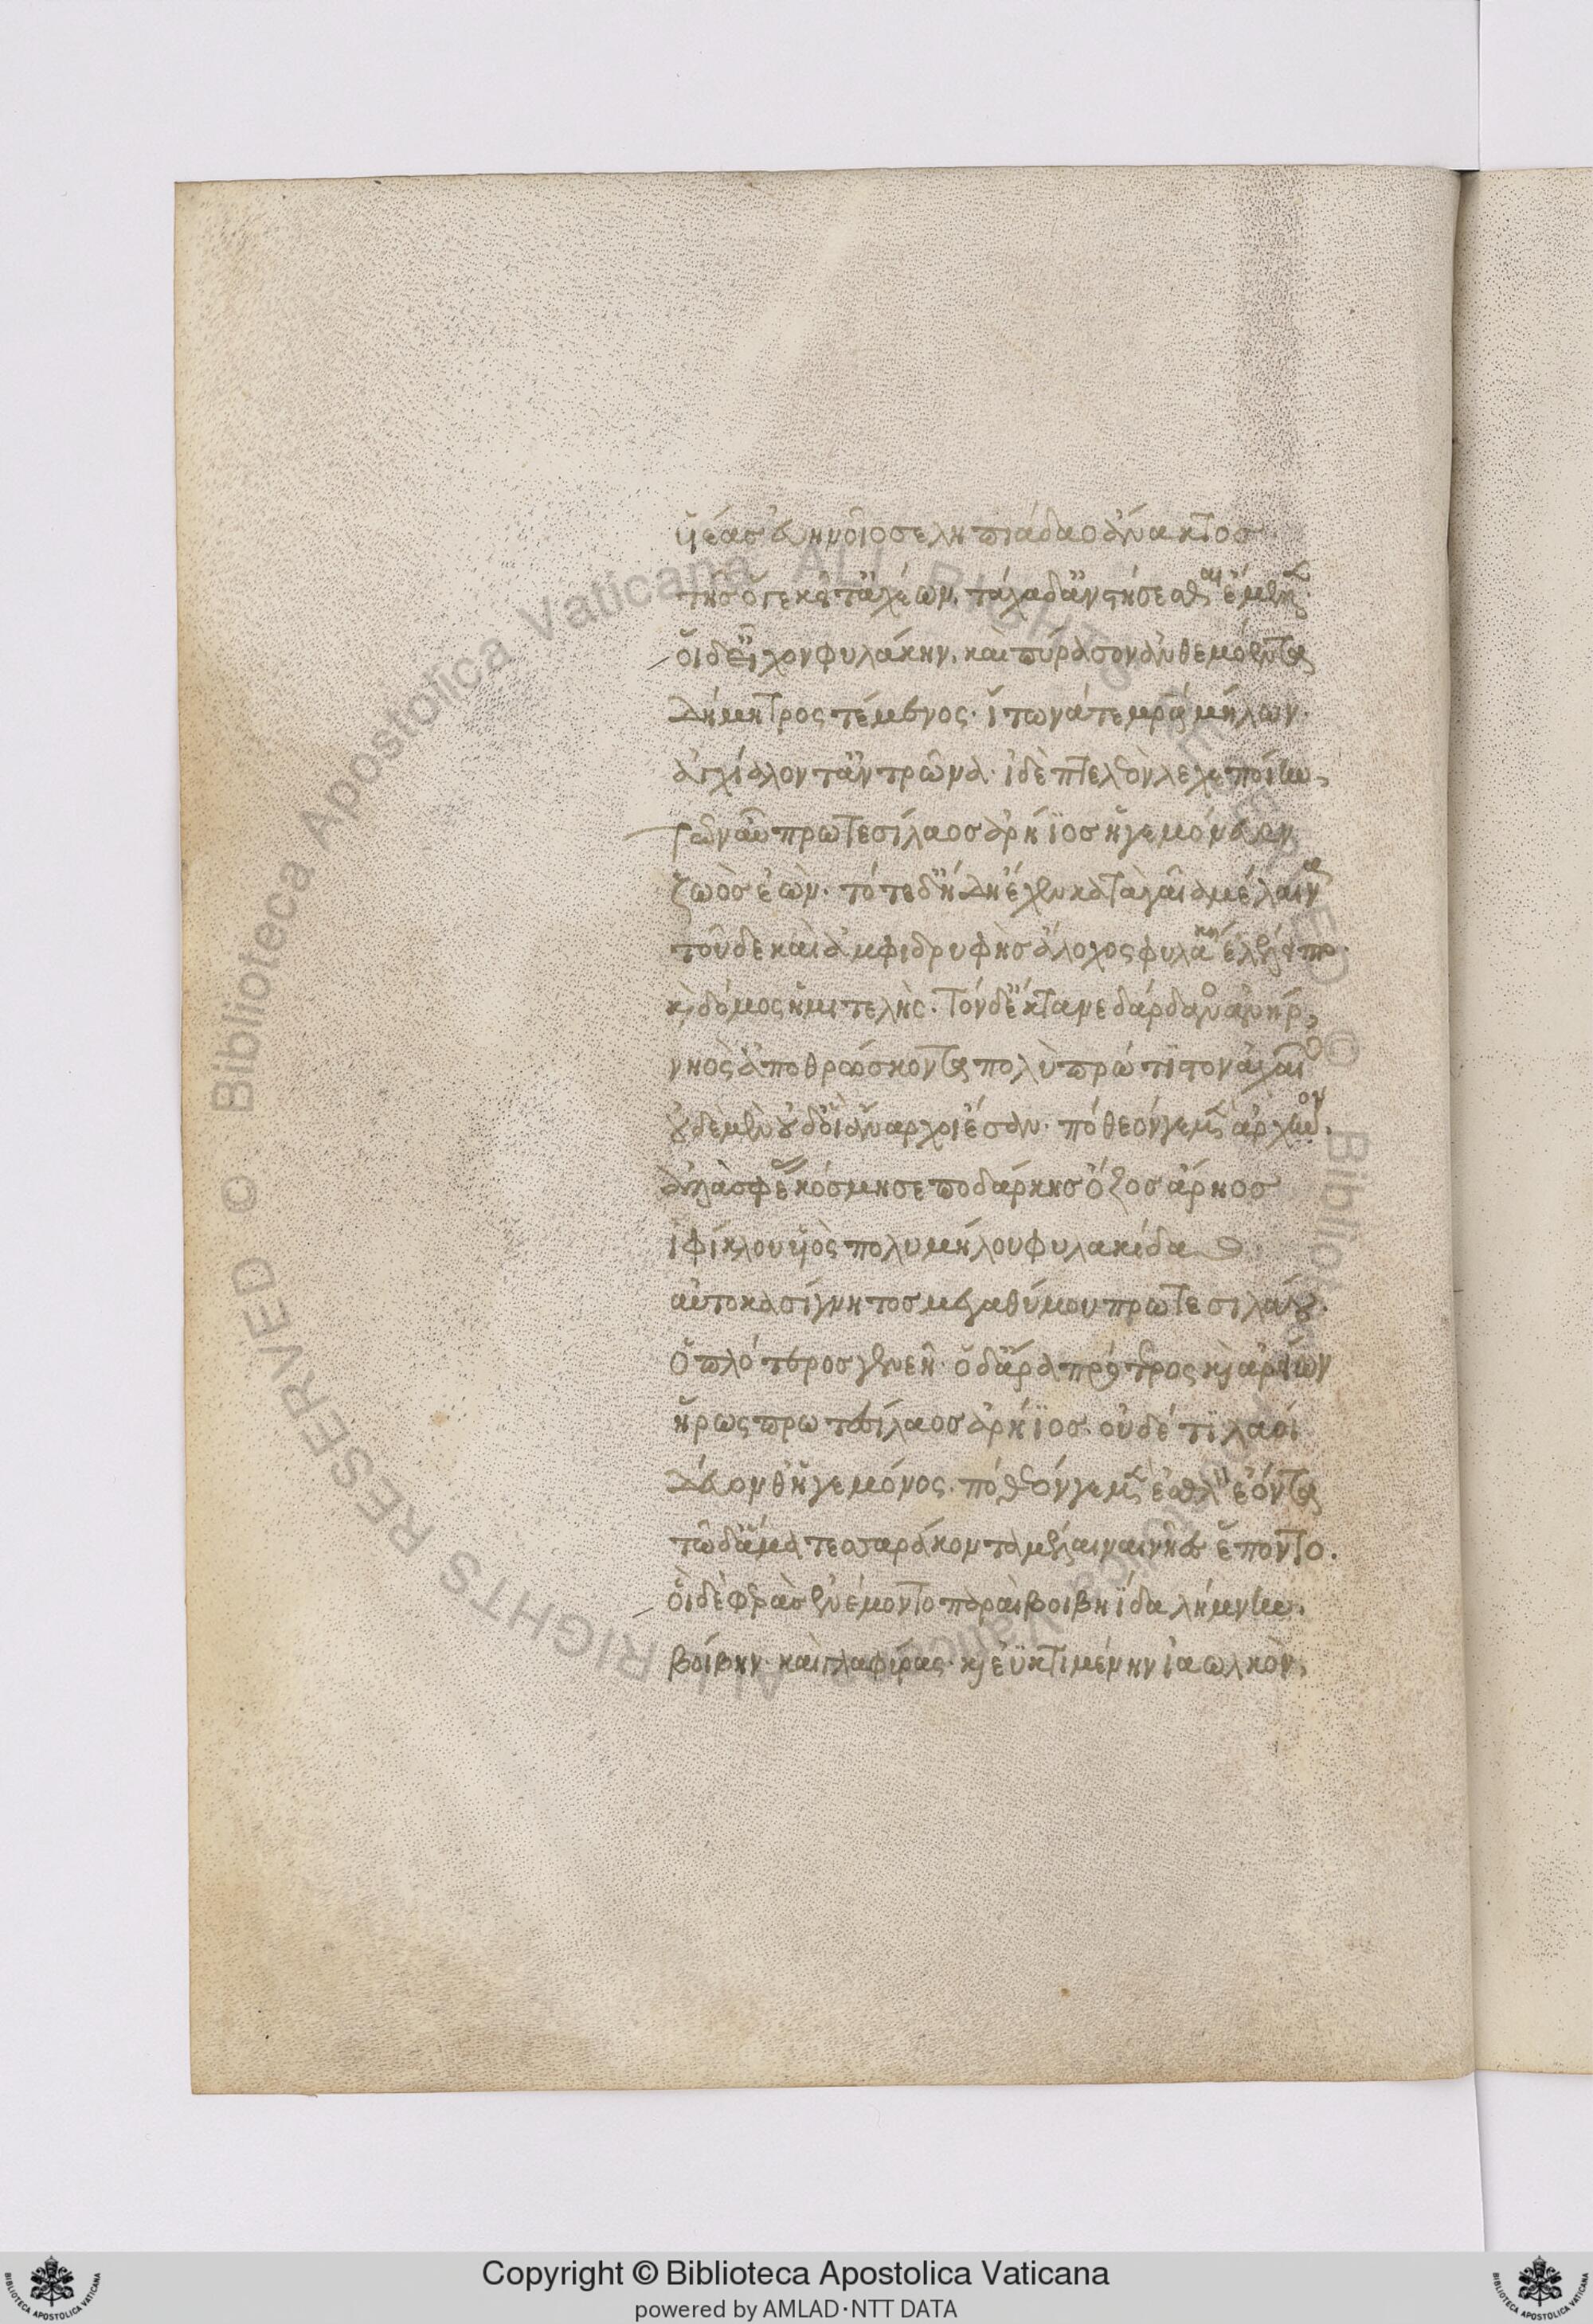 υἱέας Εὐηνοῖο Σεληπιάδαο ἄνακτος.
τῆς ὅγε κεῖτ' ἀχέων, τάχα δ' ἀνστήσεσθαι ἔμελλεν.
οἳ δ' εἶχον Φυλάκην, καὶ Πύρασον ἀνθεμόεντα
Δήμητρος τέμενος· Ἴτωνά τε μητέρα μήλων.
ἀγχίαλόν τ' Ἀντρῶνα· ἰδὲ Πτελεὸν λεχεποίην,
τῶν αὖ Πρωτεσίλαος ἀρήϊος ἡγεμόνευεν
ζωὸς ἐών· τότε δ' ἤδη ἔχεν κάτα γαῖα μέλαινα
τοῦ δὲ καὶ ἀμφιδρυφὴς ἄλοχος Φυλάκῃ ἐλέλειπτο.
καὶ δόμος ἡμιτελής· τὸν δ' ἔκτανε Δάρδανος ἀνήρ,
νηὸς ἀποθρώσκοντα πολὺ πρώτιστον Ἀχαιῶν
οὐδὲ μὲν οὐδ' οἳ ἄναρχοι ἔσαν· πόθεόν γε μὲν ἀρχόν.
ἀλλὰ σφε' κόσμησε Ποδάρκης ὄζος Ἄρηος
Ἰφίκλου υἱὸς πολυμήλου Φυλακίδαο.
αὐτοκασίγνητος μεγαθύμου Πρωτεσιλάου.
ὁπλότερος γενεῇ· ὁ δ' ἄρα πρότερος καὶ ἀρείων
ἥρως Πρωτεσίλαος ἀρήϊος· οὐδέ τι λαοὶ
δεύονθ' ἡγεμόνος· πόθεόν γε μὲν ἐσθλὸν ἐόντα
τῷ δ' ἅμα τεσσαράκοντα μέλαιναι νῆες ἕποντο.
οἳ δὲ Φερὰς ἐνέμοντο παραὶ Βοιβηΐδα λήμνην.
Βοίβην· καὶ Γλαφύρας· καὶ ἐϋκτιμένην Ἰαωλκόν,
Copyright © Biblioteca Apostolica Vaticana
powered by AMLAD·NTT DATA